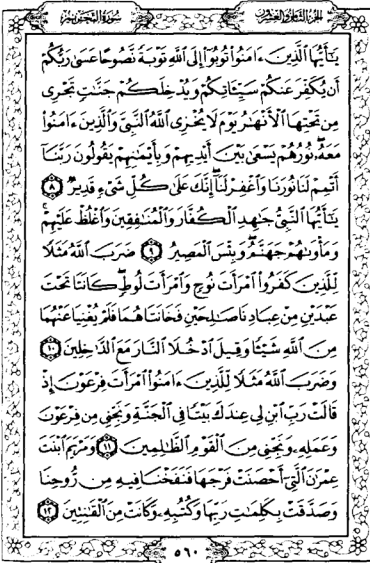 الجزء الثامن والعشرون
سورة التحريم
يَٰٓأَيُّهَا ٱلَّذِينَ ءَامَنُوا۟ تُوبُوٓا۟ إِلَى ٱللَّهِ تَوْبَةً نَّصُوحًا عَسَىٰ رَبُّكُمْ
أَن يُكَفِّرَ عَنكُمْ سَيِّـَٔاتِكُمْ وَيُدْخِلَكُمْ جَنَّٰتٍ تَجْرِى
مِن تَحْتِهَا ٱلْأَنْهَٰرُ يَوْمَ لَا يُخْزِى ٱللَّهُ ٱلنَّبِىَّ وَٱلَّذِينَ ءَامَنُوا۟
مَعَهُۥ نُورُهُمْ يَسْعَىٰ بَيْنَ أَيْدِيهِمْ وَبِأَيْمَٰنِهِمْ يَقُولُونَ رَبَّنَآ
أَتْمِمْ لَنَا نُورَنَا وَٱغْفِرْ لَنَآ إِنَّكَ عَلَىٰ كُلِّ شَىْءٍ قَدِيرٌ ٨
يَٰٓأَيُّهَا ٱلنَّبِىُّ جَٰهِدِ ٱلْكُفَّارَ وَٱلْمُنَٰفِقِينَ وَٱغْلُظْ عَلَيْهِمْ
وَمَأْوَىٰهُمْ جَهَنَّمُ وَبِئْسَ ٱلْمَصِيرُ ٩ ضَرَبَ ٱللَّهُ مَثَلًا
لِّلَّذِينَ كَفَرُوا۟ ٱمْرَأَتَ نُوحٍ وَٱمْرَأَتَ لُوطٍ كَانَتَا تَحْتَ
عَبْدَيْنِ مِنْ عِبَادِنَا صَٰلِحَيْنِ فَخَانَتَاهُمَا فَلَمْ يُغْنِيَا عَنْهُمَا
مِنَ ٱللَّهِ شَيْـًٔا وَقِيلَ ٱدْخُلَا ٱلنَّارَ مَعَ ٱلدَّٰخِلِينَ ١٠
وَضَرَبَ ٱللَّهُ مَثَلًا لِّلَّذِينَ ءَامَنُوا۟ ٱمْرَأَتَ فِرْعَوْنَ إِذْ
قَالَتْ رَبِّ ٱبْنِ لِى عِندَكَ بَيْتًا فِى ٱلْجَنَّةِ وَنَجِّنِى مِن فِرْعَوْنَ
وَعَمَلِهِۦ وَنَجِّنِى مِنَ ٱلْقَوْمِ ٱلظَّٰلِمِينَ ١١ وَمَرْيَمَ ٱبْنَتَ
عِمْرَٰنَ ٱلَّتِىٓ أَحْصَنَتْ فَرْجَهَا فَنَفَخْنَا فِيهِ مِن رُّوحِنَا
وَصَدَّقَتْ بِكَلِمَٰتِ رَبِّهَا وَكُتُبِهِۦ وَكَانَتْ مِنَ ٱلْقَٰنِتِينَ ١٢
٥٦٠